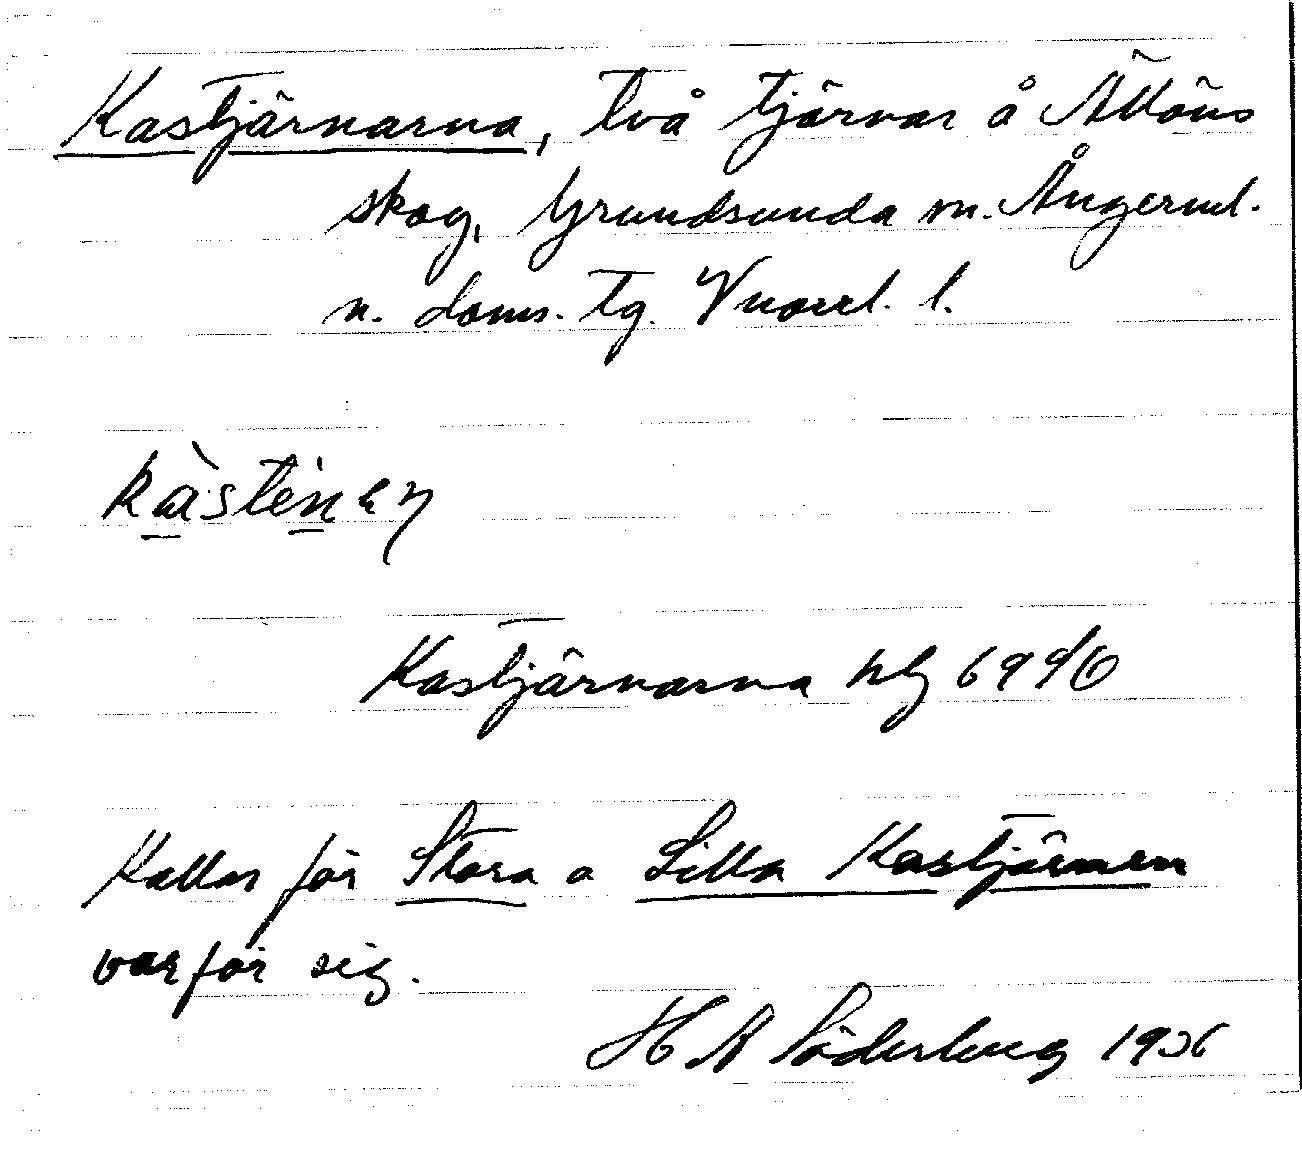 Kastjärnarna, två tjärnar å Ällöns
skog, Grundsunda sn. Ångerml.
n. doms. tg. Vnorrl. l.
Kastjärnarna
Kallas för Stora o Lilla Kastjärnen
var för sig.
H A Söderberg 1936